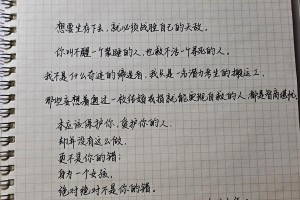 想要生存下去，就必须战胜自己的天敌。
你叫不醒一个装睡的人，也救不活一个寻死的人。
我不是什么奇迹的缔造者，我只是一名潜力考生的搬运工。
那些妄想着通过一枚结婚戒指就能实现自救的人，都是智商堪忧。
本应该保护你，爱护你的人，
却并没有这么做，
更不是你的错；
身为一个女孩，
绝对绝对不是你的错。